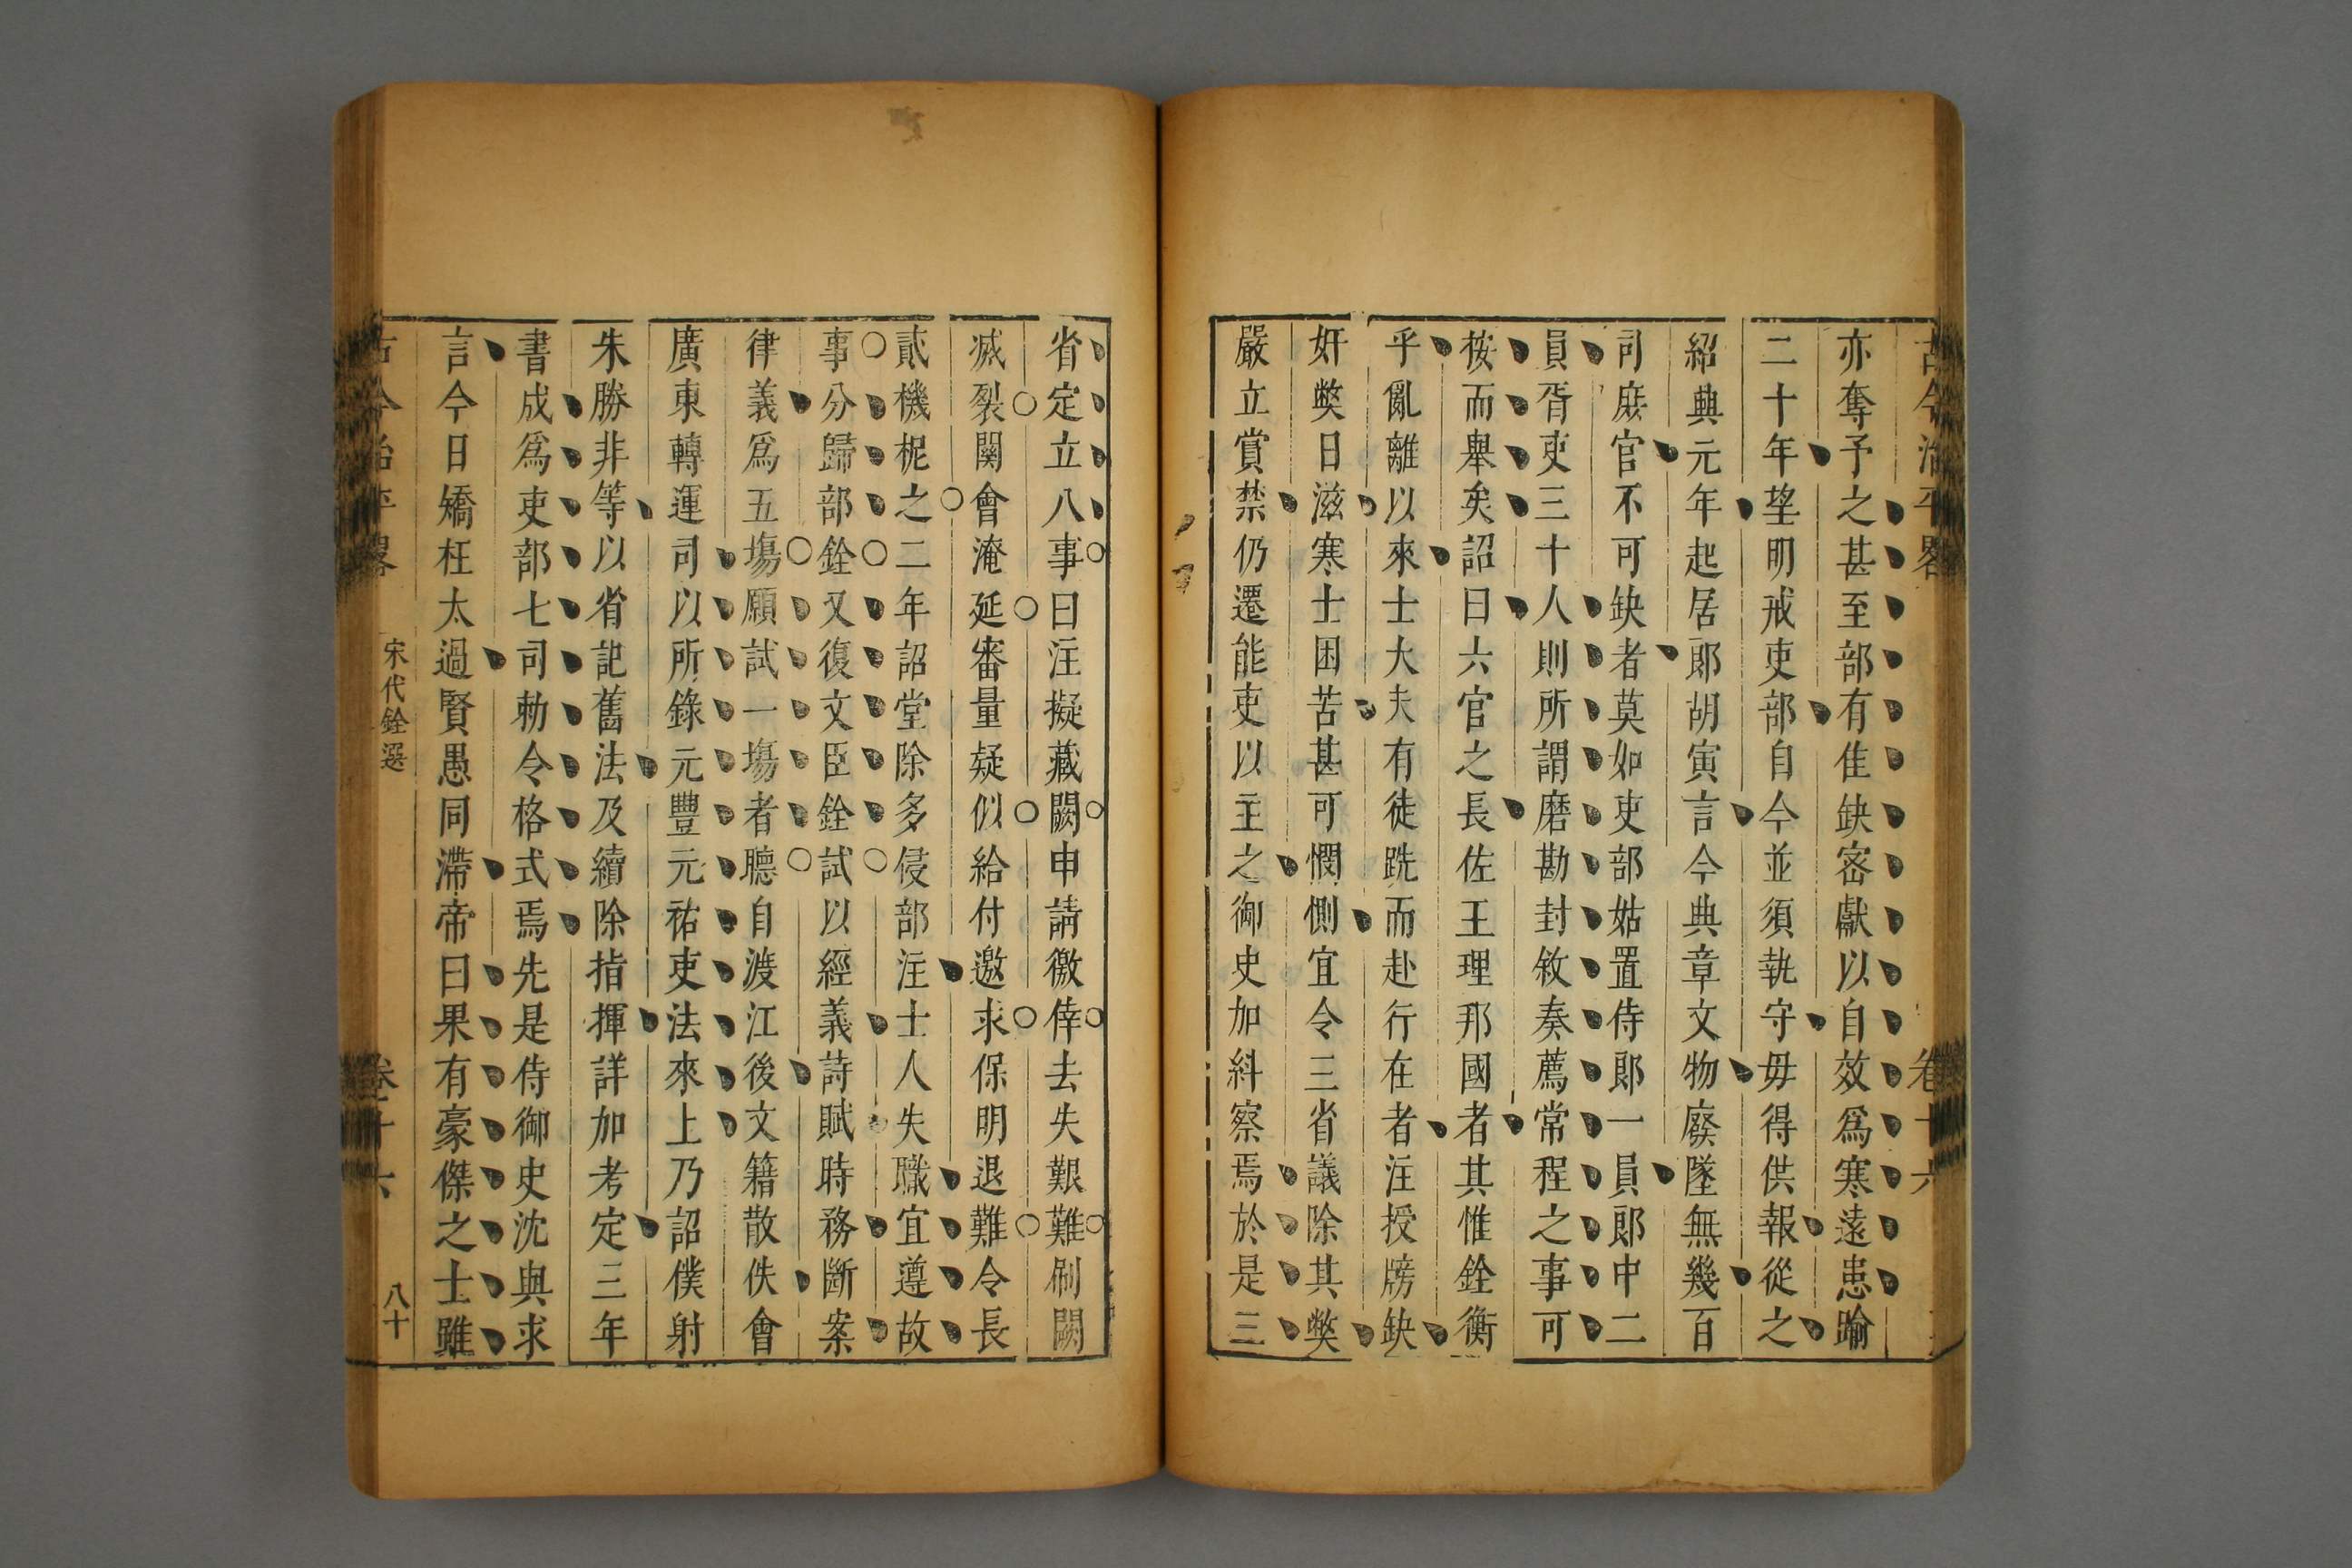 古今治平畧 卷十六
亦奪予之甚至部有佳缺密獻以自效爲寒遠患踰
二十年望明戒吏部自今並須執守毋得供報從之
紹興元年起居郎胡寅言今典章文物廢墜無幾百
司庶官不可缺者莫如吏部姑置侍郎一員郎中二
員胥吏三十人則所謂磨勘封敘奏薦常程之事可
按而舉矣詔曰六官之長佐王理邦國者其惟銓衡
乎亂離以來士大夫有徒跣而赴行在者注授牓缺
奸弊日滋寒士困苦甚可憫惻宜令三省議除其弊
嚴立賞禁仍遷能吏以主之御史加糾察焉於是三
省定立八事曰注擬藏闕申請徼倖去失艱難刷闕
滅裂関會淹延審量疑似給付邀求保明退難令長
貳機柅之二年詔堂除多侵部注士人失職宜遵故
事分歸部銓又復文臣銓試以經義詩賦時務斷案
律義爲五塲願試一塲者聽自渡江後文籍散佚會
廣東轉運司以所錄元豐元祐吏法來上乃詔僕射
朱勝非等以省記舊法及續除指揮詳加考定三年
書成爲吏部七司勅令格式焉先是侍御史沈與求
言今日矯枉太過賢愚同滯帝曰果有豪傑之士雖
古今治平畧 宋代銓選 卷十六 八十